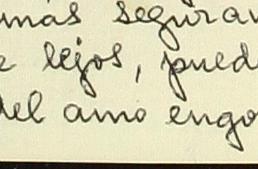 más segura
lejos, pued
del amo engo